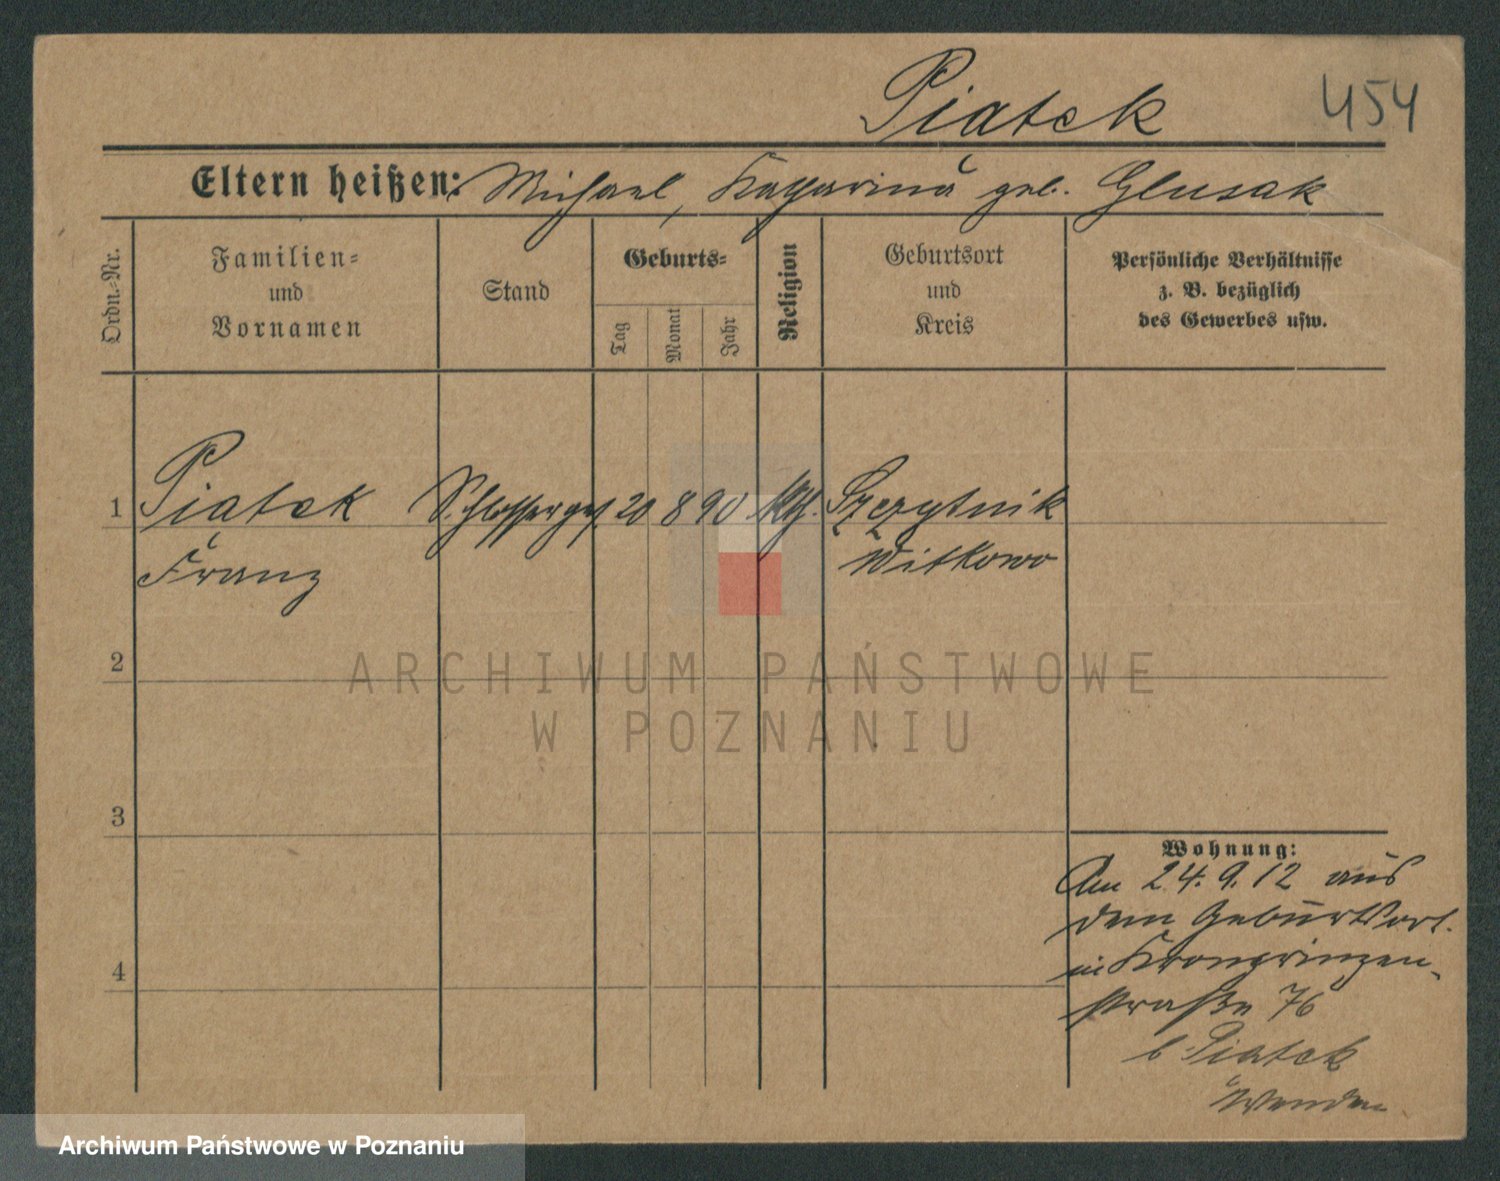 Piatek 454
Eltern heißen: Michael, Katharina geb. Glusak
Ordn.=Nr.
Familien=
und
Vornamen
Stand
Geburts=
Tag
Monat
Jahr
Religion
Geburtsort
und
Kreis
Persönliche Verhältnisse
z. B. bezüglich
des Gewerbes usw.
1 Piatek Schlosserges 20 8 90 kth. Szczytnik
Franz Witkowo
2
3
4
Wohnung:
Am 24.9.12 aus
dem Geburtsort.
in Kronprinzen-
straße 76
b. Piatek
Wenden
ARCHIWUM PAŃSTWOWE
W POZNANIU
Archiwum Państwowe w Poznaniu